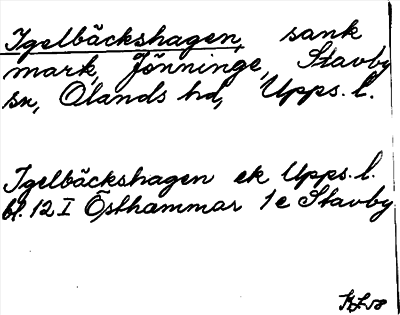 Igelbäckshagen, sank
mark, Jönninge, Stavby
sn, Olands hd, Upps. l.
Igelbäckshagen ek Upps. l.
bl. 12 I Östhammar 1e Stavby